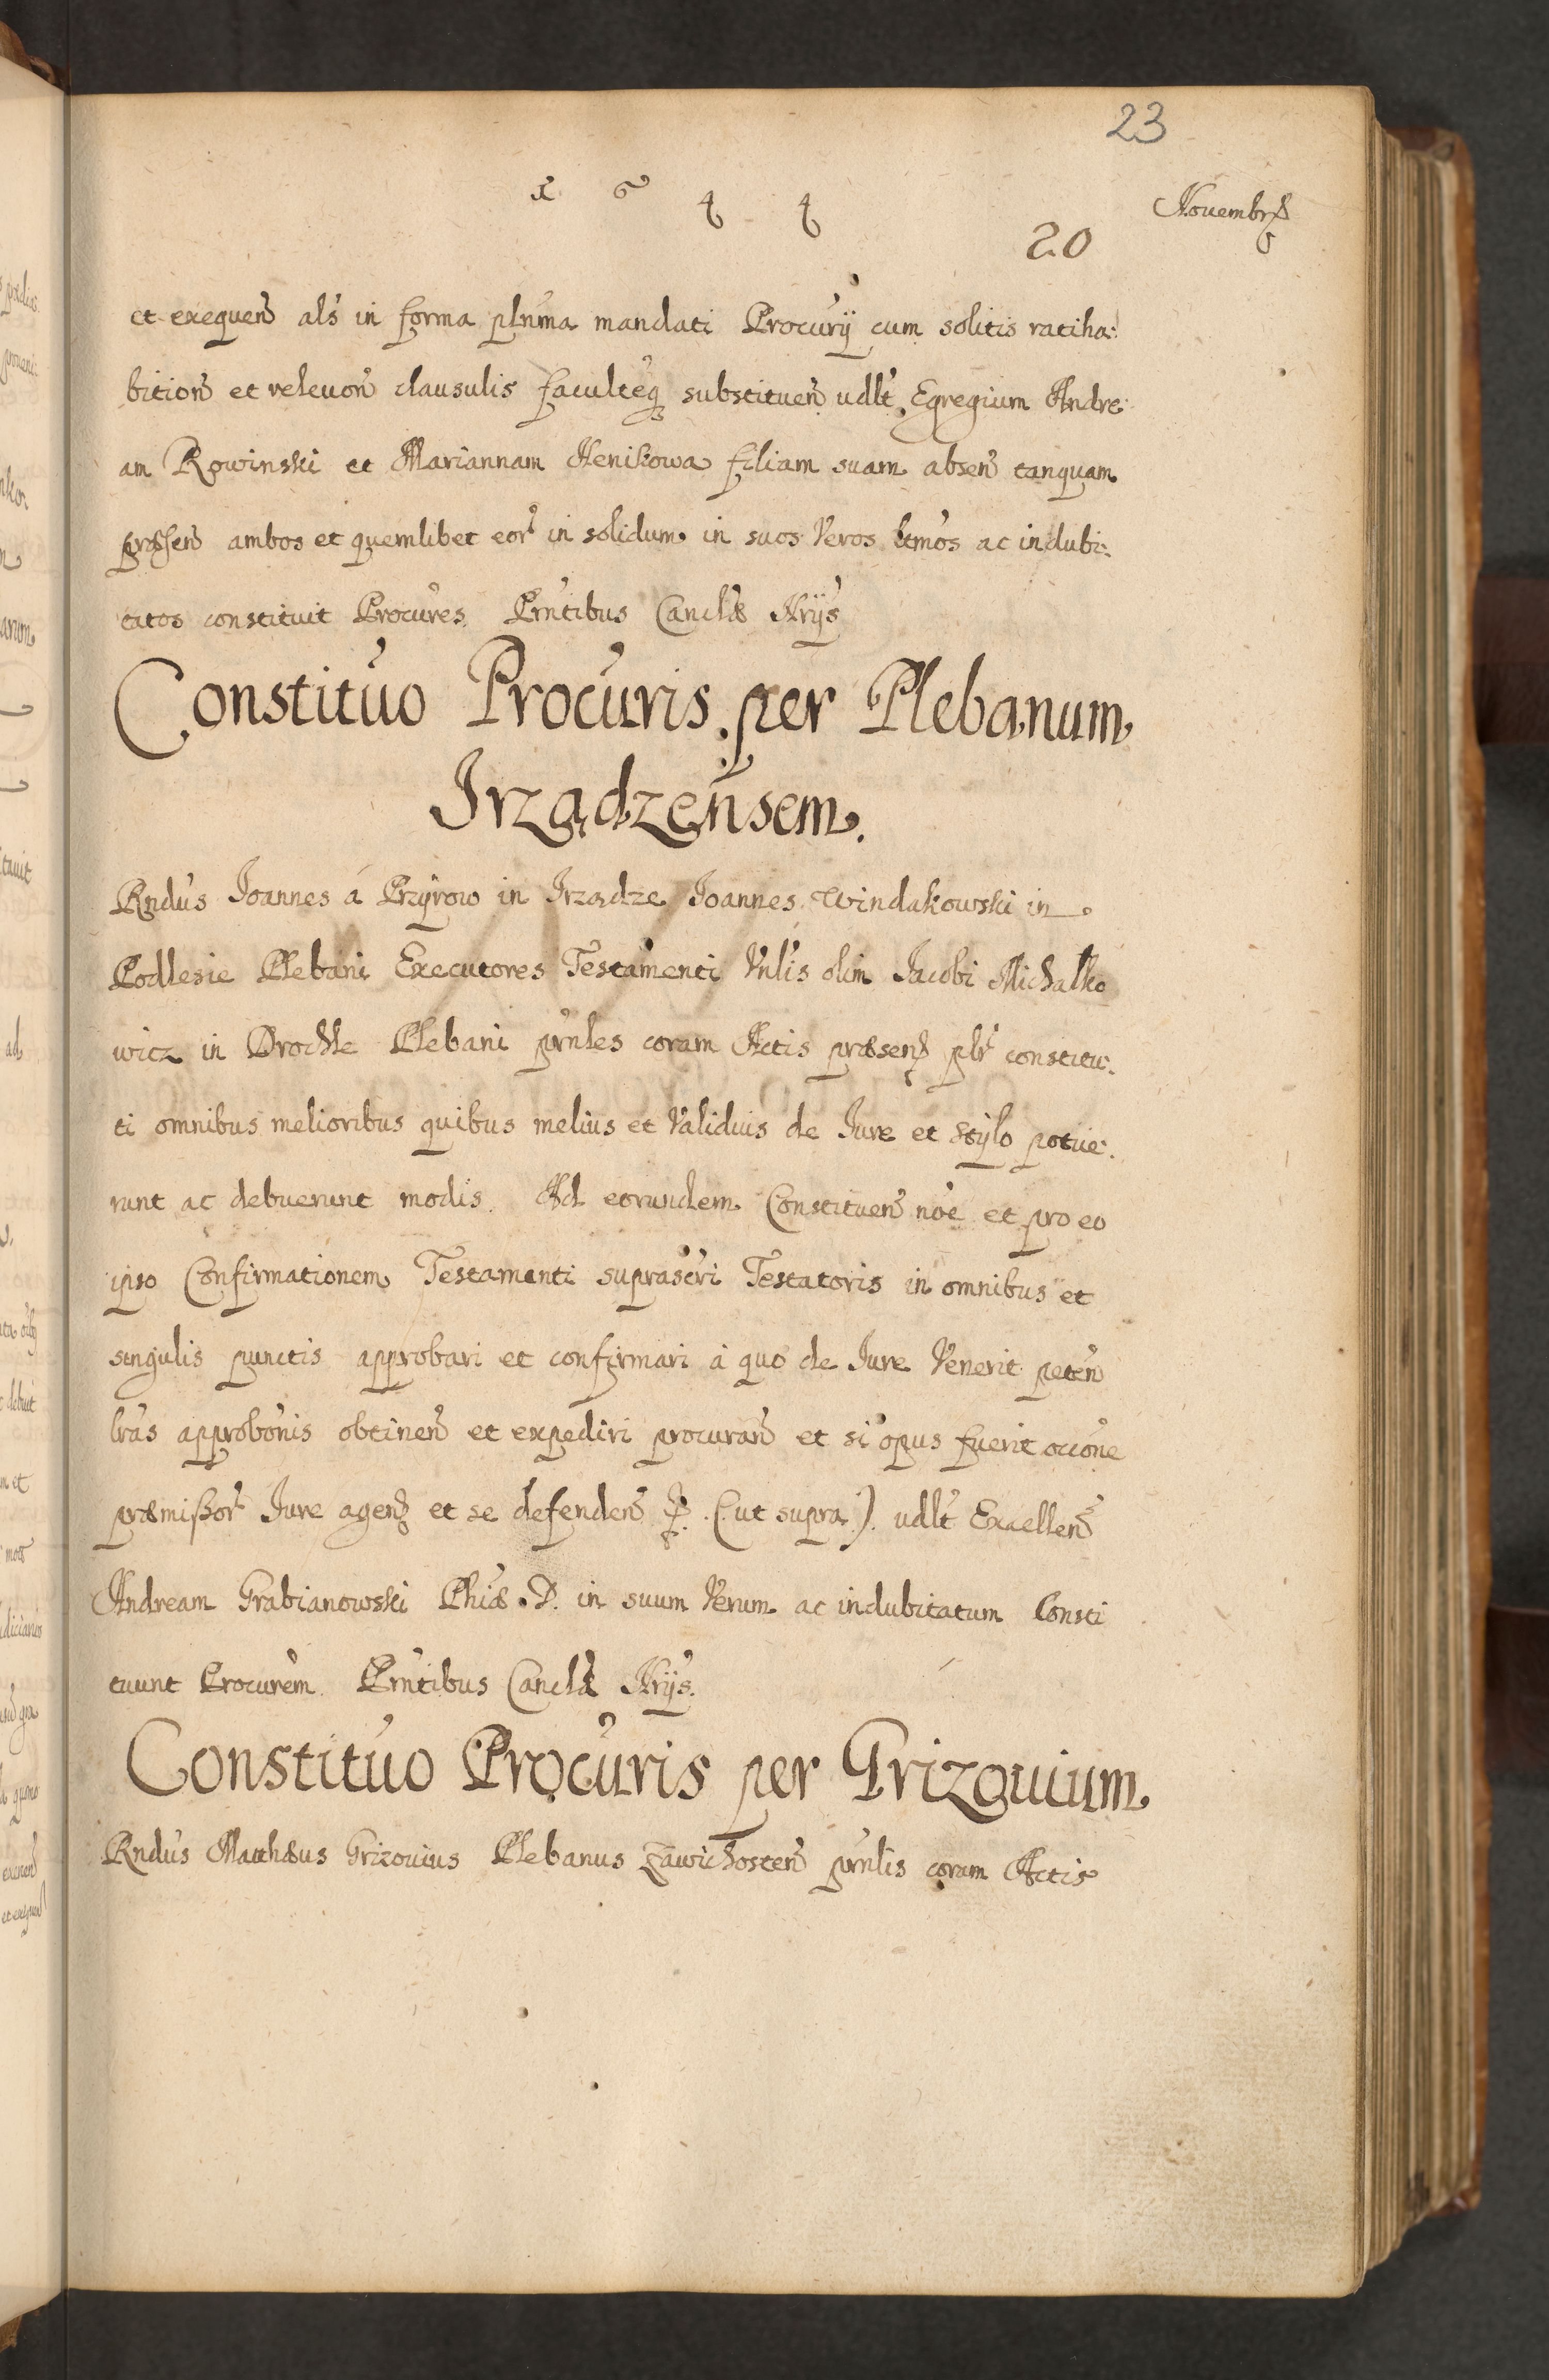 23
1 6 4 4
Novembris
20
et exequen̄ als̄ in forma plnīma mandati Procur̄ÿ cum solitis ratiha:
bition̄ et relevon̄ clausulis facultēq̨ substituen̄ vdlt̄ Egregium Andre:
am Rowinski et Mariannam Henikowa filiam suam absen̄ tanquam
præsen̄ ambos et quemlibet eor̄ in solidum in suos Veros ltmōs ac indubi:
tatos constituit Procūres. Prn̄tibus Canclǣ Nrÿs̄
Constitūo Procūris per Plebanum
Irządzen̄sem.
Rndūs Joannes á Przÿrow in Irzadze Joannes Windakowski in
Podlesie Plebani Executores Testamenti Vnlīs olim Jacobi Michalko
wicz in Drochle Plebani prn̄les coram Actis præsen̄ plr̄ constitu:
ti omnibus melioribus quibus melius et Validius de Jure et Stÿlo potue:
runt ac debuerunt modis. Ad eorundem Constituen̄ nōe et pro eo
ipso Confirmationem Testamenti suprascr̄i Testatoris in omnibus et
singulis punctis approbari et confirmari à quo de Jure Venerit peten̄
lrās approbōnis obtinen̄ et expediri procuran̄ et si opus fuerit occōne
præmissor̄ Jure agen̄ et se defenden̄ p. (ut supra). vdlt̄ Excellen̄
Andream Grabianowski Phiǣ D. in suum Verum ac indubitatum Consti
tuunt Procurēm. Prn̄tibus Canclǣ Nrÿs̄.
Constitūo Procūris per Grizouium
Rndūs Matthæus Grizouius Plebanus Zawichosten̄ prn̄lis coram Actis